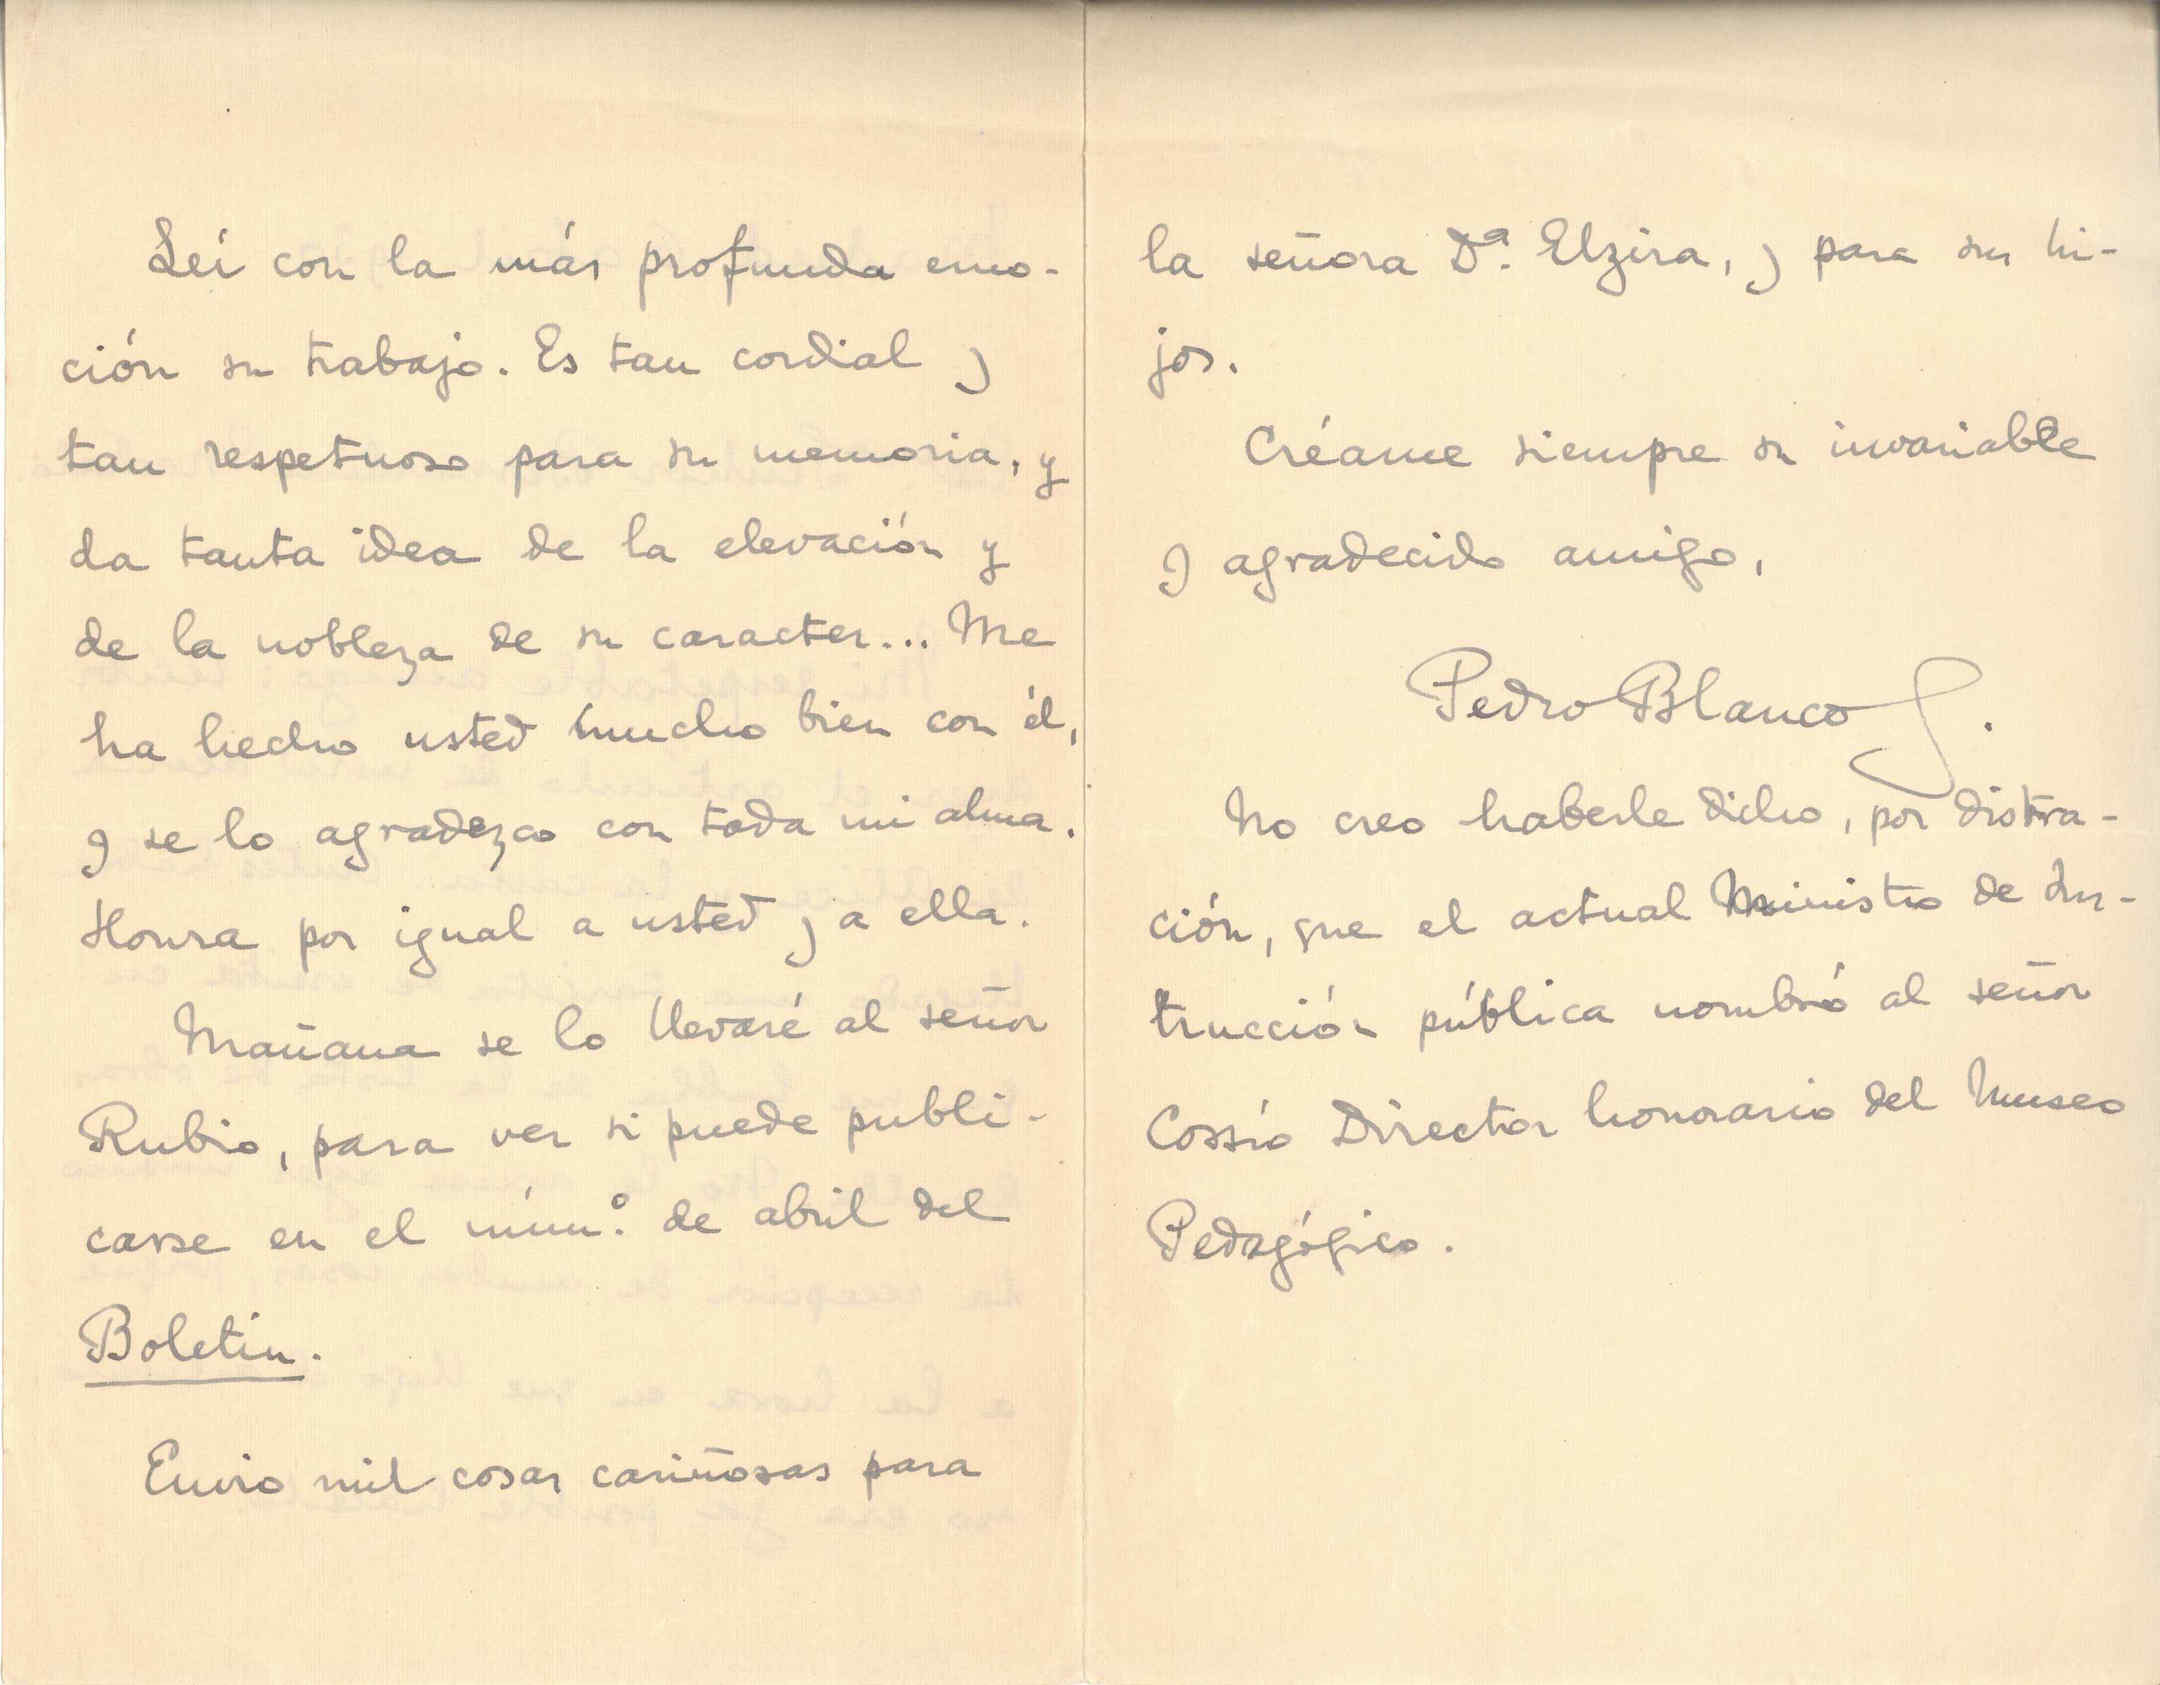 Leí con la más profunda emo-
ción su trabajo. Es tan cordial y
tan respetuoso para su memoria, y
da tanta idea de la elevación y
de la nobleza de su caracter... Me
ha hecho usted mucho bien con él,
y se lo agradezco con toda mi alma.
Honra por igual a usted y a ella.
Mañana se lo llevaré al señor
Rubio, para ver si puede publi-
carse en el núm.º de abril del
Boletin.
Envio mil cosas cariñosas para
la señora Dª. Elzira, y para sus hi-
jos.
Créame siempre su invariable
y agradecido amigo,
Pedro Blanco S.
No creo haberle dicho, por distra-
ción, que el actual Ministro de Ins-
trucción pública nombró al señor
Cossío Director honorario del Museo
Pedagógico.